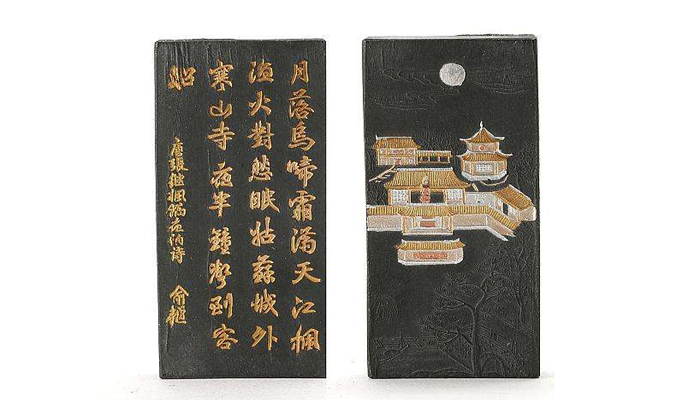 月落烏啼霜滿天江楓
漁火對愁眠姑蘇城外
寒山寺夜半鐘聲到客
船
唐張継楓橋夜泊詩
俞樾